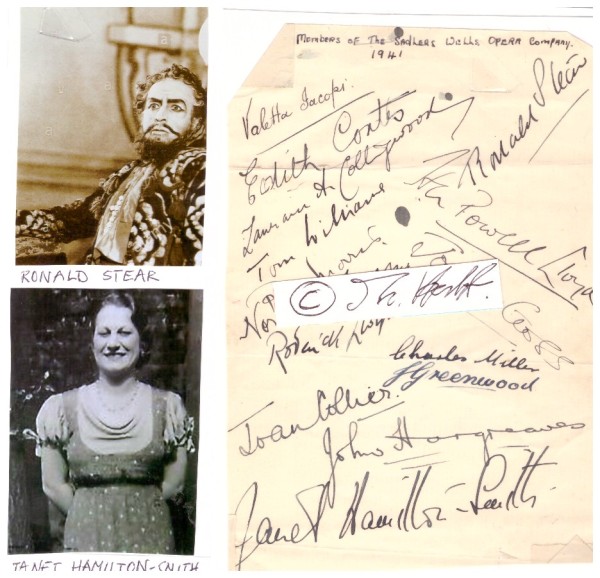 MEMBERS OF THE SADLERS WELLS OPERA COMPANY.
1941
Valetta Iacopi.
Ronald Stear
Edith Coates
Lawrance A Collingwood
Tom Williams
Powell Lloyd
©
Roderick Lloyd
Charles Miller
Greenwood
Joan Collier.
John Hargreaves
Janet Hamilton-Smith.
RONALD STEAR
JANET HAMILTON-SMITH